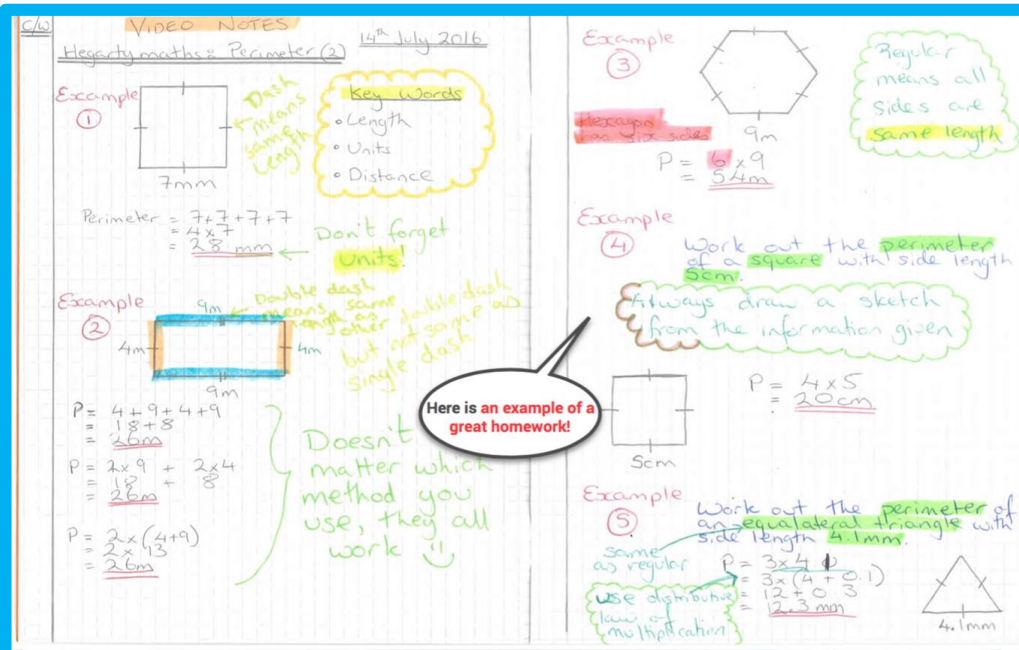 C/W
VIDEO NOTES
Hegartymaths: Perimeter (2)
14th July 2016
Example
1
Dash
means
same
length
7mm
Key Words
• Length
• Units
• Distance
Perimeter = 7+7+7+7
= 4x7
= 28 mm
Don't forget
units!
Example
2
9m
Double dash
means same
length as
other double dash
but not same as
single dash
4m
4m
9m
P = 4+9+4+9
= 18+8
= 26m
P = 2x9 + 2x4
= 18 + 8
= 26m
P = 2x(4+9)
= 2x 13
= 26m
Doesn't
matter which
method you
use, they all
work
Here is an example of a
great homework!
Example
3
Hexagon
has six sides
9m
P = 6x9
= 54m
Regular
means all
sides are
same length
Example
4
Work out the perimeter
of a square with side length
5cm.
Always draw a sketch
from the information given
P = 4x5
= 20cm
5cm
Example
5
Work out the perimeter of
an equalateral triangle with
side length 4.1mm.
same
as regular
P = 3x4.1
= 3x(4+0.1)
= 12+0.3
= 12.3mm
use distributive
law of
multiplication
4.1mm